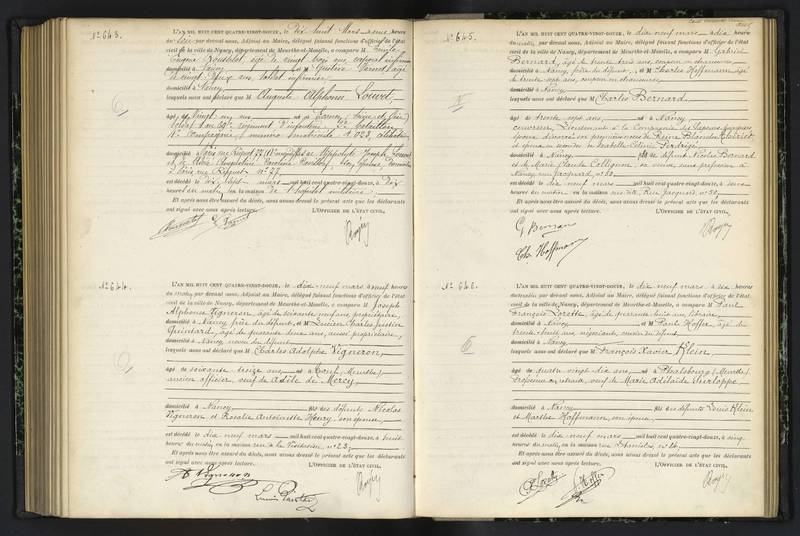 N° 643.
L'AN MIL HUIT CENT QUATRE-VINGT-DOUZE, le dix huit Mars à une heure
du soir par devant nous, Adjoint au Maire, délégué faisant fonctions d'officier de l'état
civil de la ville de Nancy, département de Meurthe-et-Moselle, a comparu M. Emile
âgé de vingt trois ans, caporal infirmier
domicilié à Nancy et M Gustave âgé
de vingt deux ans, soldat infirmier
domicilié à Nancy
lesquels nous ont déclaré que M Auguste Alphonse Louvet,
âgé de Vingt un ans né à
soldat au régiment d'infanterie, bataillon
Compagnie, numéro matricule 4.023, célibataire
domicilié à Paris rue Riquet 77, fils de Hippolyte Joseph Louvet
et de
à Paris rue Riquet N° 77
est décédé le dix sept mars mil huit cent quatre-vingt-douze, à dix
heures du matin, en la maison de l'hôpital militaire.
Et après nous être assuré du décès, nous avons dressé le présent acte que les déclarants
ont signé avec nous après lecture. L'OFFICIER DE L'ÉTAT CIVIL,
N° 644.
L'AN MIL HUIT CENT QUATRE-VINGT-DOUZE, le dix-neuf mars à neuf heures
du matin, par devant nous, Adjoint au Maire, délégué faisant fonctions d'officier de l'état
civil de la ville de Nancy, département de Meurthe-et-Moselle, a comparu M Joseph
Alphonse Vigneron, âgé de soixante neuf ans, propriétaire,
domicilié à Nancy, frère du défunt, et M Lucien Charles Justin
Quintard, âgé de quarante deux ans, aussi propriétaire,
domicilié à Nancy, neveu du défunt
lesquels nous ont déclaré que M Charles Adolphe Vigneron,
âgé de soixante treize ans né à Toul, (Meurthe),
ancien officier, veuf de Adèle de Mercy
domicilié à Nancy fils des défunts Nicolas
Vigneron et Rosalie Antoinette Henry, son épouse,
est décédé le dix neuf mars mil huit cent quatre-vingt-douze, à huit
heures du matin, en la maison rue de la Visitation, n° 23,
Et après nous être assuré du décès, nous avons dressé le présent acte que les déclarants
ont signé avec nous après lecture. L'OFFICIER DE L'ÉTAT CIVIL,
A Vigneron
N° 645.
L'AN MIL HUIT CENT QUATRE-VINGT-DOUZE, le dix neuf mars à dix
heures du matin, par devant nous, Adjoint au Maire, délégué faisant fonctions d'officier de l'état
civil de la ville de Nancy, département de Meurthe-et-Moselle, a comparu M Gabriel
Bernard, âgé de trente trois ans, coupeur en chaussures,
domicilié à Nancy, frère du défunt, et M Charles Hoffmann, âgé
de trente sept ans, coupeur en chaussures,
domicilié à Nancy
lesquels nous ont déclaré que M Charles Bernard,
âgé de trente sept ans, né à Nancy,
couvreur, Lieutenant à la Compagnie des Sapeurs pompiers,
époux
et époux en secondes de Isabelle Célinie
domicilié à Nancy fils de défunt Nicolas Bernard
et de Marie Claude Collignon, sa veuve, sans profession à
Nancy, rue Jacquard, n° 50
est décédé le dix neuf mars mil huit cent quatre-vingt-douze, à
heures du matin en la maison rue Jacquard n° 50
Et après nous être assuré du décès, nous avons dressé le présent acte que les déclarants
ont signé avec nous après lecture. L'OFFICIER DE L'ÉTAT CIVIL,
G Bernard
Ch. Hoffmann
N° 646.
L'AN MIL HUIT CENT QUATRE-VINGT-DOUZE, le dix neuf mars à dix heures
du matin, par devant nous, Adjoint au Maire, délégué faisant fonctions d'officier de l'état
civil de la ville de Nancy, département de Meurthe-et-Moselle, a comparu M Paul
François âgé de quarante huit ans, libraire
domicilié à Nancy et M Paul Hoffer, âgé de
trente huit ans, négociant, du défunt,
domicilié à Nancy
lesquels nous ont déclaré que M François Xavier Klein,
âgé de quatre vingt dix ans, né à Phalsbourg, (Meurthe)
Professeur en retraite, veuf de Marie Adélaïde
domicilié à Nancy fils des défunts Louis Klein
et Marthe Hoffmann, son épouse,
est décédé le dix neuf mars mil huit cent quatre-vingt-douze, à cinq
heures du matin, en la maison
Et après nous être assuré du décès, nous avons dressé le présent acte que les déclarants
ont signé avec nous après lecture. L'OFFICIER DE L'ÉTAT CIVIL,